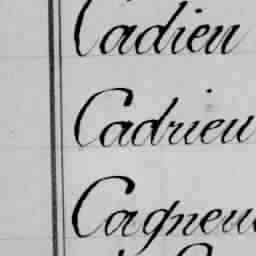 Cadieu
Cadrieu
Cagneu